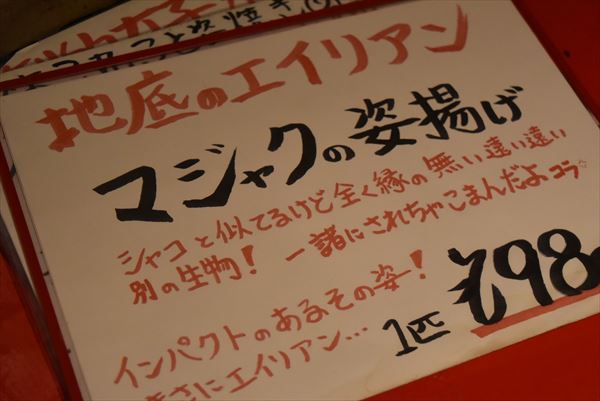 地底のエイリアン
マジャクの姿揚げ
シャコと似てるけど全く縁の無い遠い遠い
別の生物! 一諸にされちゃこまんだよコラ☆
インパクトのあるその姿!
まさにエイリアン…
1匹 ¥98